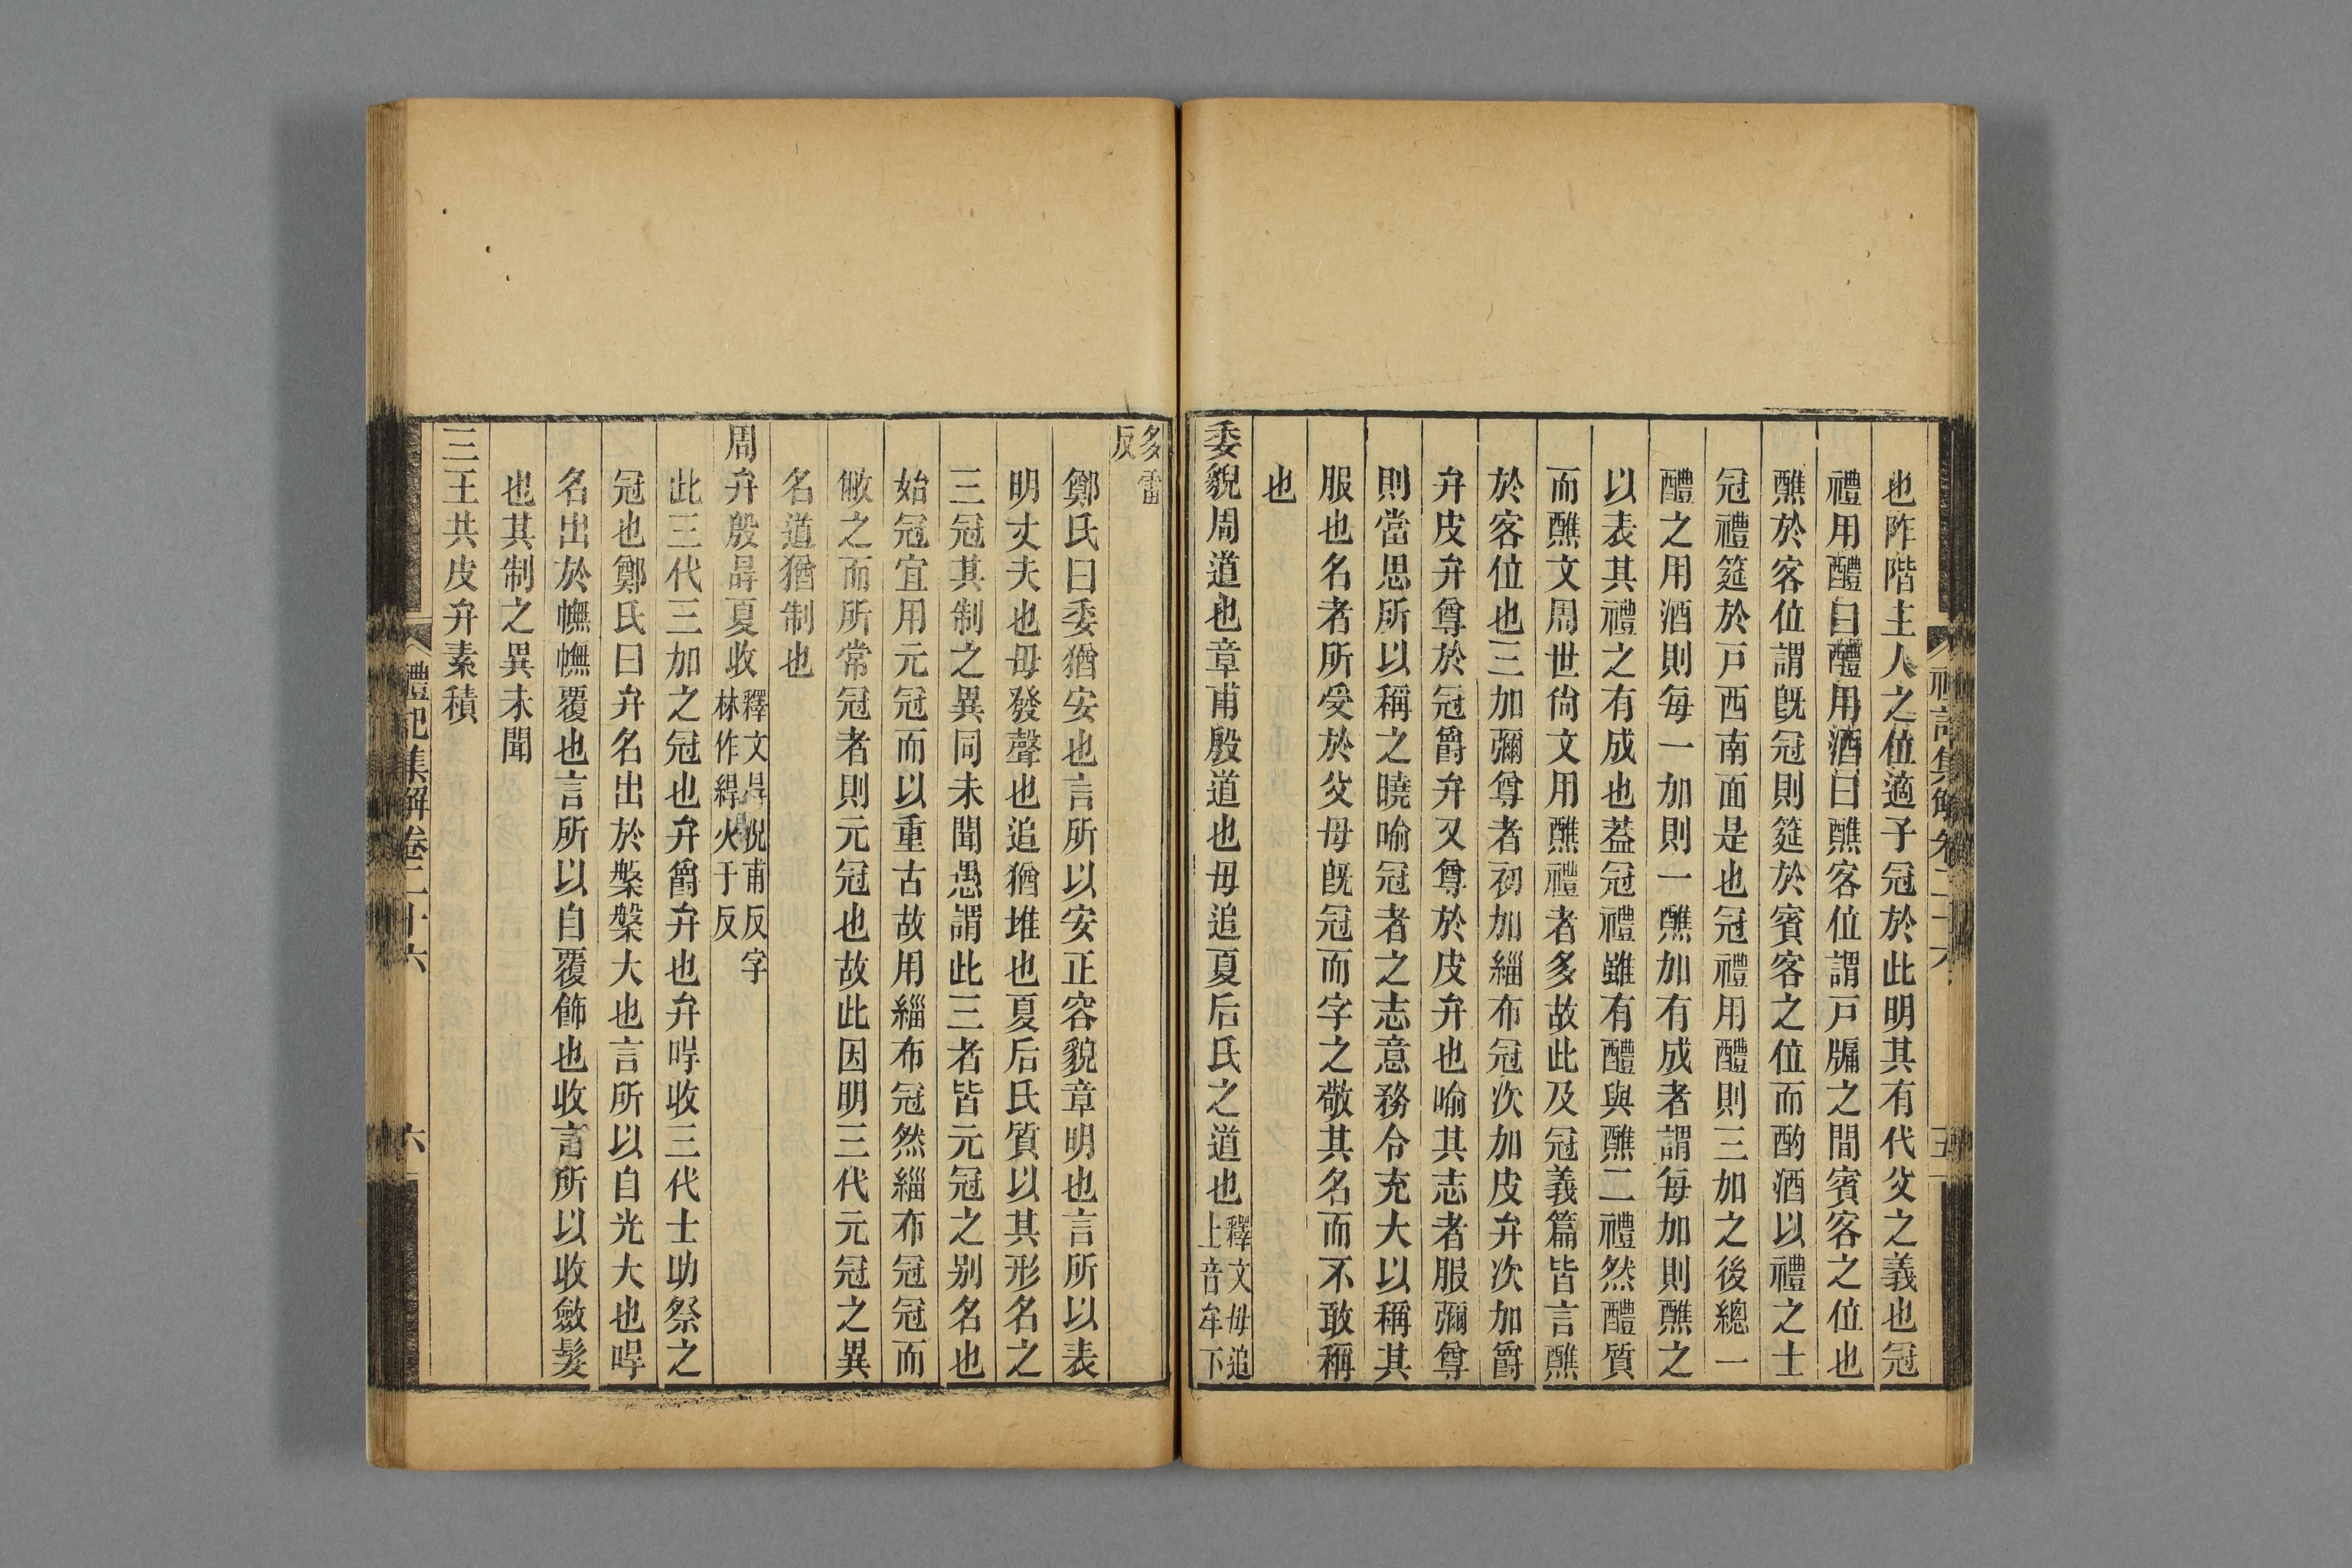 也阼階主人之位適子冠於此明其有代父之義也冠
禮用醴曰醴用酒曰醮客位謂戸牖之間賓客之位也
醮於客位謂旣冠則筵於賓客之位而酌酒以禮之士
冠禮筵於戸西南面是也冠禮用醴則三加之後總一
醴之用酒則每一加則一醮加有成者謂每加則醮之
以表其禮之有成也葢冠禮雖有醴與醮二禮然醴質
而醮文周世尙文用醮禮者多故此及冠義篇皆言醮
於客位也三加彌尊者初加緇布冠次加皮弁次加爵
弁皮弁尊於冠爵弁又尊於皮弁也喻其志者服彌尊
則當思所以稱之曉喻冠者之志意務令充大以稱其
服也名者所受於父母旣冠而字之敬其名而不敢稱
也
委貌周道也章甫殷道也毋追夏后氏之道也釋文毋追
上音牟下
禮記集解卷二十六
五
多雷
反
鄭氏曰委猶安也言所以安正容貌章明也言所以表
明丈夫也毋發聲也追猶堆也夏后氏質以其形名之
三冠其制之異同未聞愚謂此三者皆元冠之别名也
始冠宜用元冠而以重古故用緇布冠然緇布冠冠而
敝之而所常冠者則元冠也故此因明三代元冠之異
名道猶制也
周弁殷冔夏收釋文冔況甫反字
林作繟火于反
此三代三加之冠也弁爵弁也弁哻收三代士助祭之
冠也鄭氏曰弁名出於槃槃大也言所以自光大也哻
名出於幠幠覆也言所以自覆飾也收言所以收斂髮
也其制之異未聞
三王共皮弁素積
禮記集解卷二十六
六